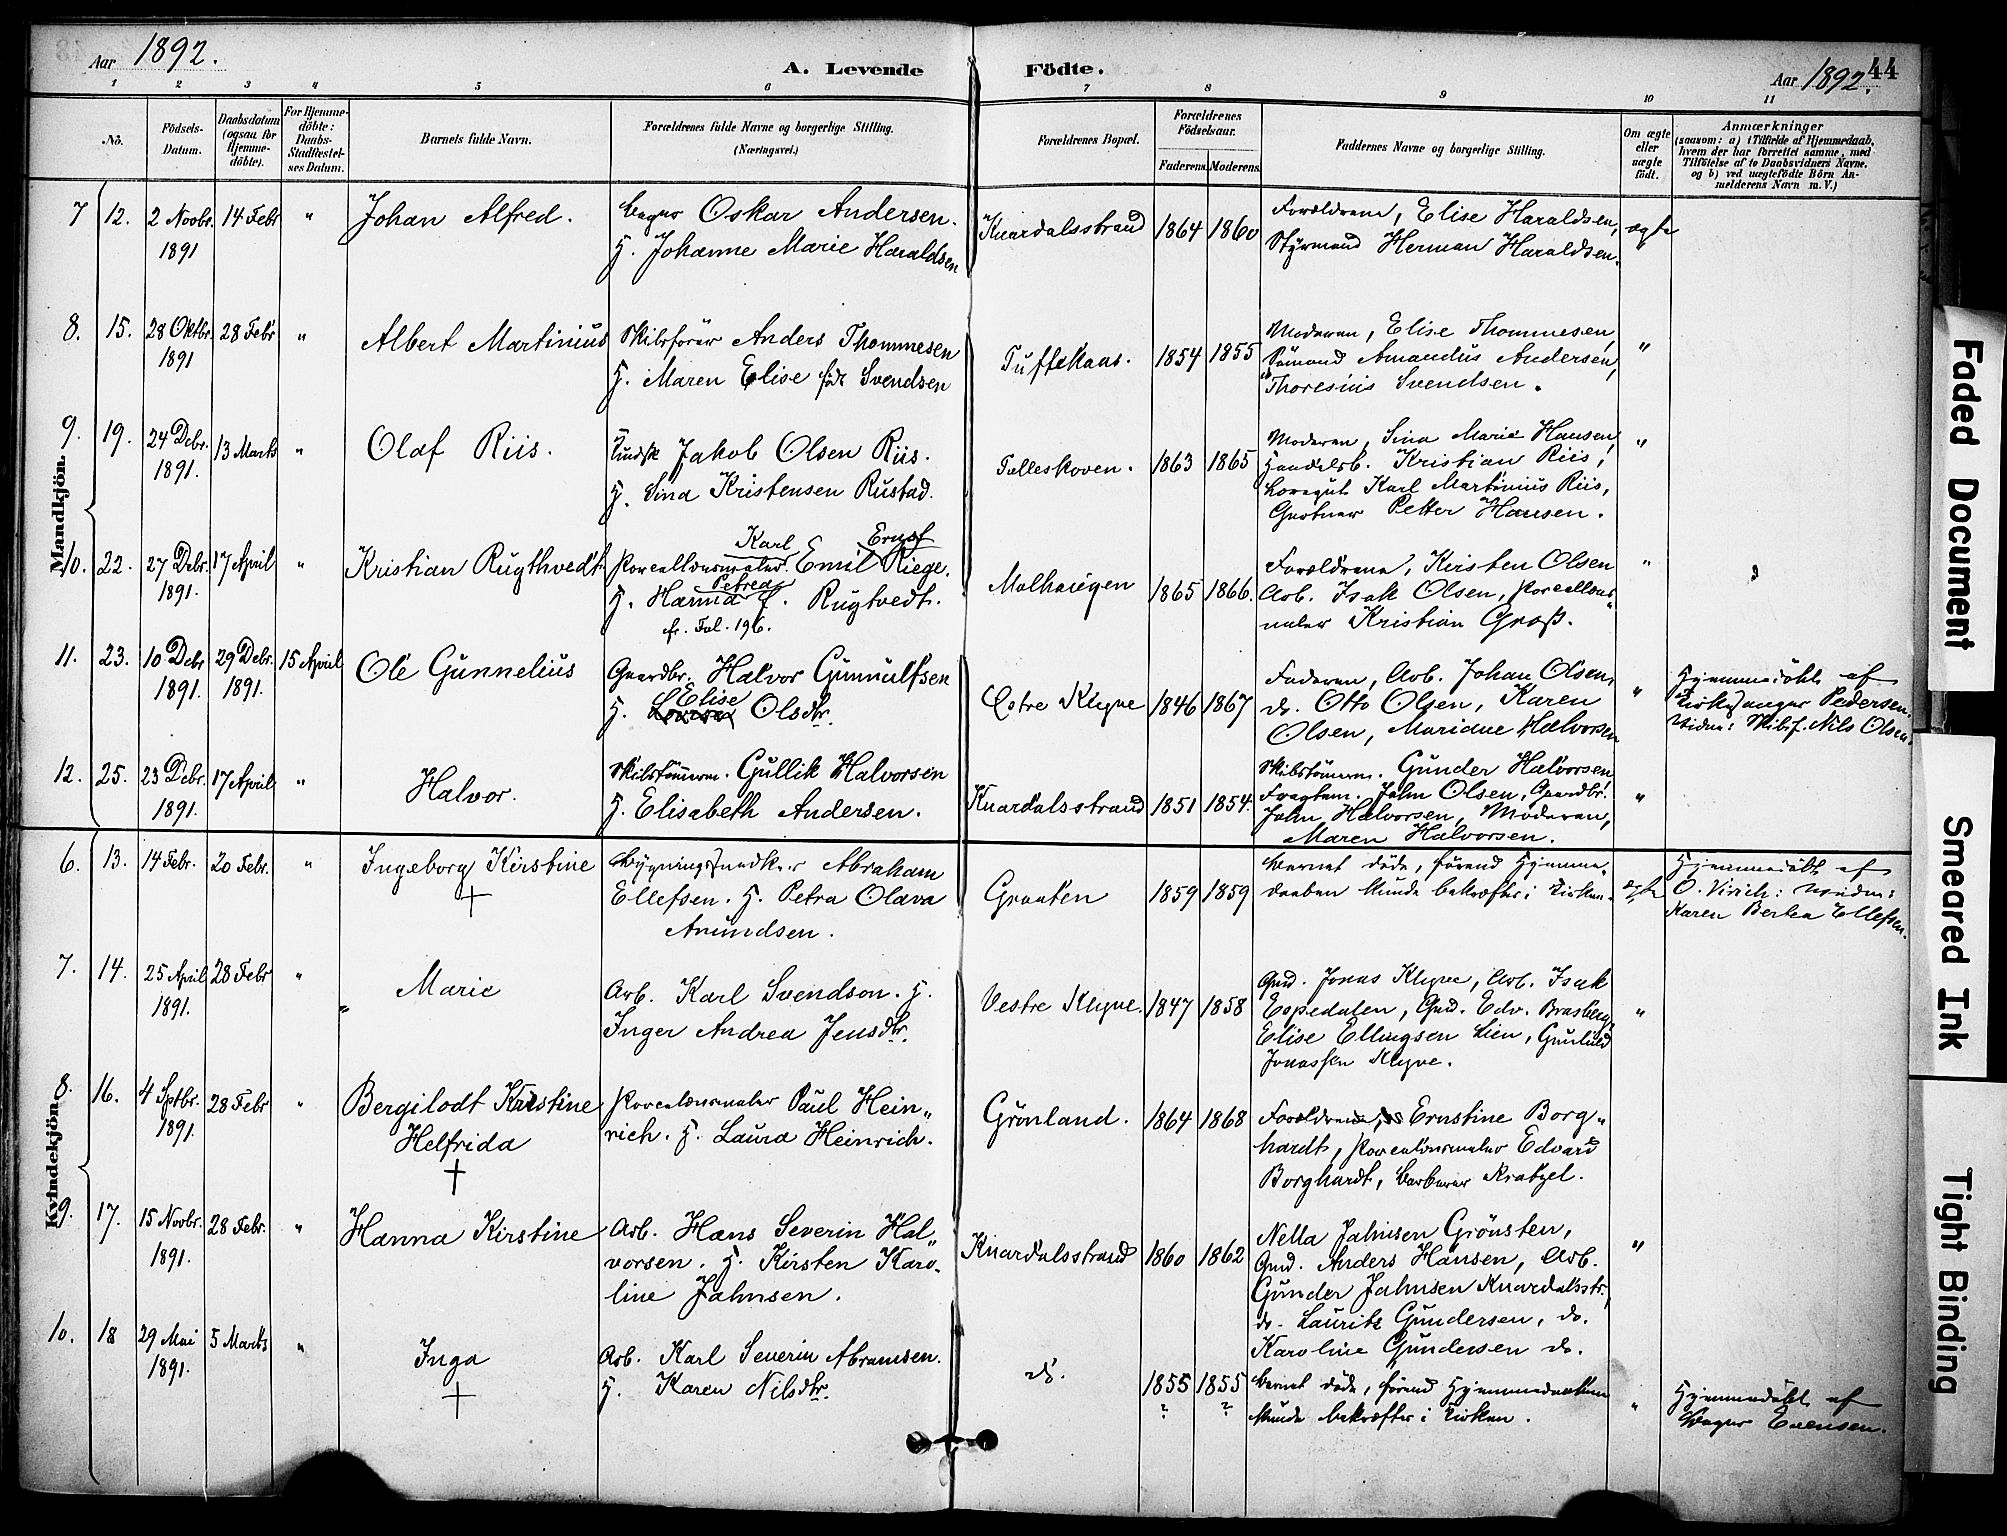 Aar 1892. A. Levende Födte. Aar 1892. 44
1 2 3 4 5 6 7 8 9 10 11
No. Födsels-Datum. Daabsdatum (ogsaa for Hjemme-döbte). For Hjemme-döbte: Daabs-Stadfæstel-ses Datum. Barnets fulde Navn. Forældrenes fulde Navne og borgerlige Stilling. (Næringsvei.) Forældrenes Bopæl. Forældrenes Födselsaar. Faderens. Moderens. Faddernes Navne og borgerlige Stilling. Om ægte eller uægte födt. Anmærkninger (saasom: a) i Tilfælde af Hjemmedaab, hvem der har forrettet samme, med Tilföielse af to Daabsvidners Navne, og b) ved uægtefödte Börn An-melderens Navn m. V.)
Mandkjön.
7 12. 2 Novbr. 1891 14 Febr " Johan Alfred. Bager Oskar Andersen.
H. Johanne Marie Haraldsen
Knardalsstrand 1864 1860 Forældrene, Elise Haraldsen,
Styrmand Herman Haraldsen. ægte
8. 15. 28 Oktbr. 1891 28 Febr " Albert Martinius Skibsförer Anders Thommesen
H. Maren Elise född Svendsen
Tuftekaas. 1854 1855 Moderen, Elise Thommesen,
Sömand Amandus Andersen,
Thoresius Svendsen. "
9. 19. 24 Debr. 1891. 13 Marts " Olaf Riis. Jakob Olsen Riis.
H. Sina Kristensen Rustad.
Tolleskoven. 1863 1865 Moderen, Sina Marie Hansen,
Handelsb. Kristian Riis,
Karl Martinius Riis,
Gartner Petter Hansen. "
10. 22. 27 Debr. 1891. 17 April " Kristian Rugthvedt. Karl Ernst
Porcellænsmaler Emil Riege.
Petrea
H. Hanna f. Rugtvedt.
cfr. Fol. 196.
Molhaugen 1865 1866. Forældrene, Kirsten Olsen
Arb. Isak Olsen, Porcellæns-
maler Kristian Groß. "
11. 23. 10 Debr 1891. 29 Debr. 1891. 15 April Ole Gunnelius Gaardbr. Halvor Gunnulfsen
H. Elise Olsdtr.
Östre Klyve 1846 1867 Faderen, Arb. Johan Olsen,
do. Otto Olsen, Karen
Olsen, Mariane Halvorsen " Hjemmedöbt af
Kirkesanger Pedersen.
Vidne: Skibsf. Nils Olsen.
12. 25. 23 Debr. 1891. 17 April " Halvor. Skibstömm. Gullik Halvorsen
H. Elisabeth Andersen.
Knardalsstrand 1851 1854. Skibstömm. Gunder Halvorsen,
John Olsen, Gaardbr.
John Halvorsen, Moderen,
Maren Halvorsen. "
Kvindekjön
6. 13. 14 Febr. 20 Febr. " Ingeborg Kirstine
† Bygningssnedker Abraham
Ellefsen. H. Petra Olava
Amundsen.
Graaten 1859 1859 Barnet döde, förend Hjemme-
daaben kunde bekræftes i Kirken. ægte Hjemmedöbt af
Karen Berthea Ellefsen.
7. 14. 25 April 1891. 28 Febr " Marie Arb. Karl Svendson. H.
Inger Andrea Jensdtr.
Vestre Klyve. 1847 1858 Gmd. Jonas Klyve, Arb. Isak
Espedalen, Gmd. Edv. Brasberg,
Elise Ellingsen Lien, Gunhild
Jonassen Klyve. "
8. 16. 4 Septbr. 1891. 28 Febr " Bergilodt Kirstine
Helfrida
† Porcelænsmaler Paul Hein-
rich. H. Laura Heinrich.
Grönland. 1864 1868 Forældrene, Ernstine Borg-
hardt, Porcelænsmaler Edvard
Borghardt, Barberer Kratzel.
9. 17. 15 Novbr. 1891. 28 Febr. " Hanna Kirstine Arb. Hans Severin Hal-
vorsen. H. Kirsten Karo-
line Jahnsen.
Knardalsstrand 1860 1862 Nella Jahnsen Grönsten,
Gmd. Anders Hansen, Arb.
Gunder Jahnsen Knardalsstr.,
do. Lauritz Gundersen, do.
Karoline Gundersen do. "
10. 18 29 Mai 1891. 5 Marts " Inga
† Arb. Karl Severin Abramsen.
H. Karen Nilsdtr.
do. 1855 ? 1855 ? Barnet döde, förend Hjemmedaaben
kunde bekræftes i Kirken. " Hjemmedöbt af
Bager Evensen.
Faded Document
Smeared Ink
Tight Binding